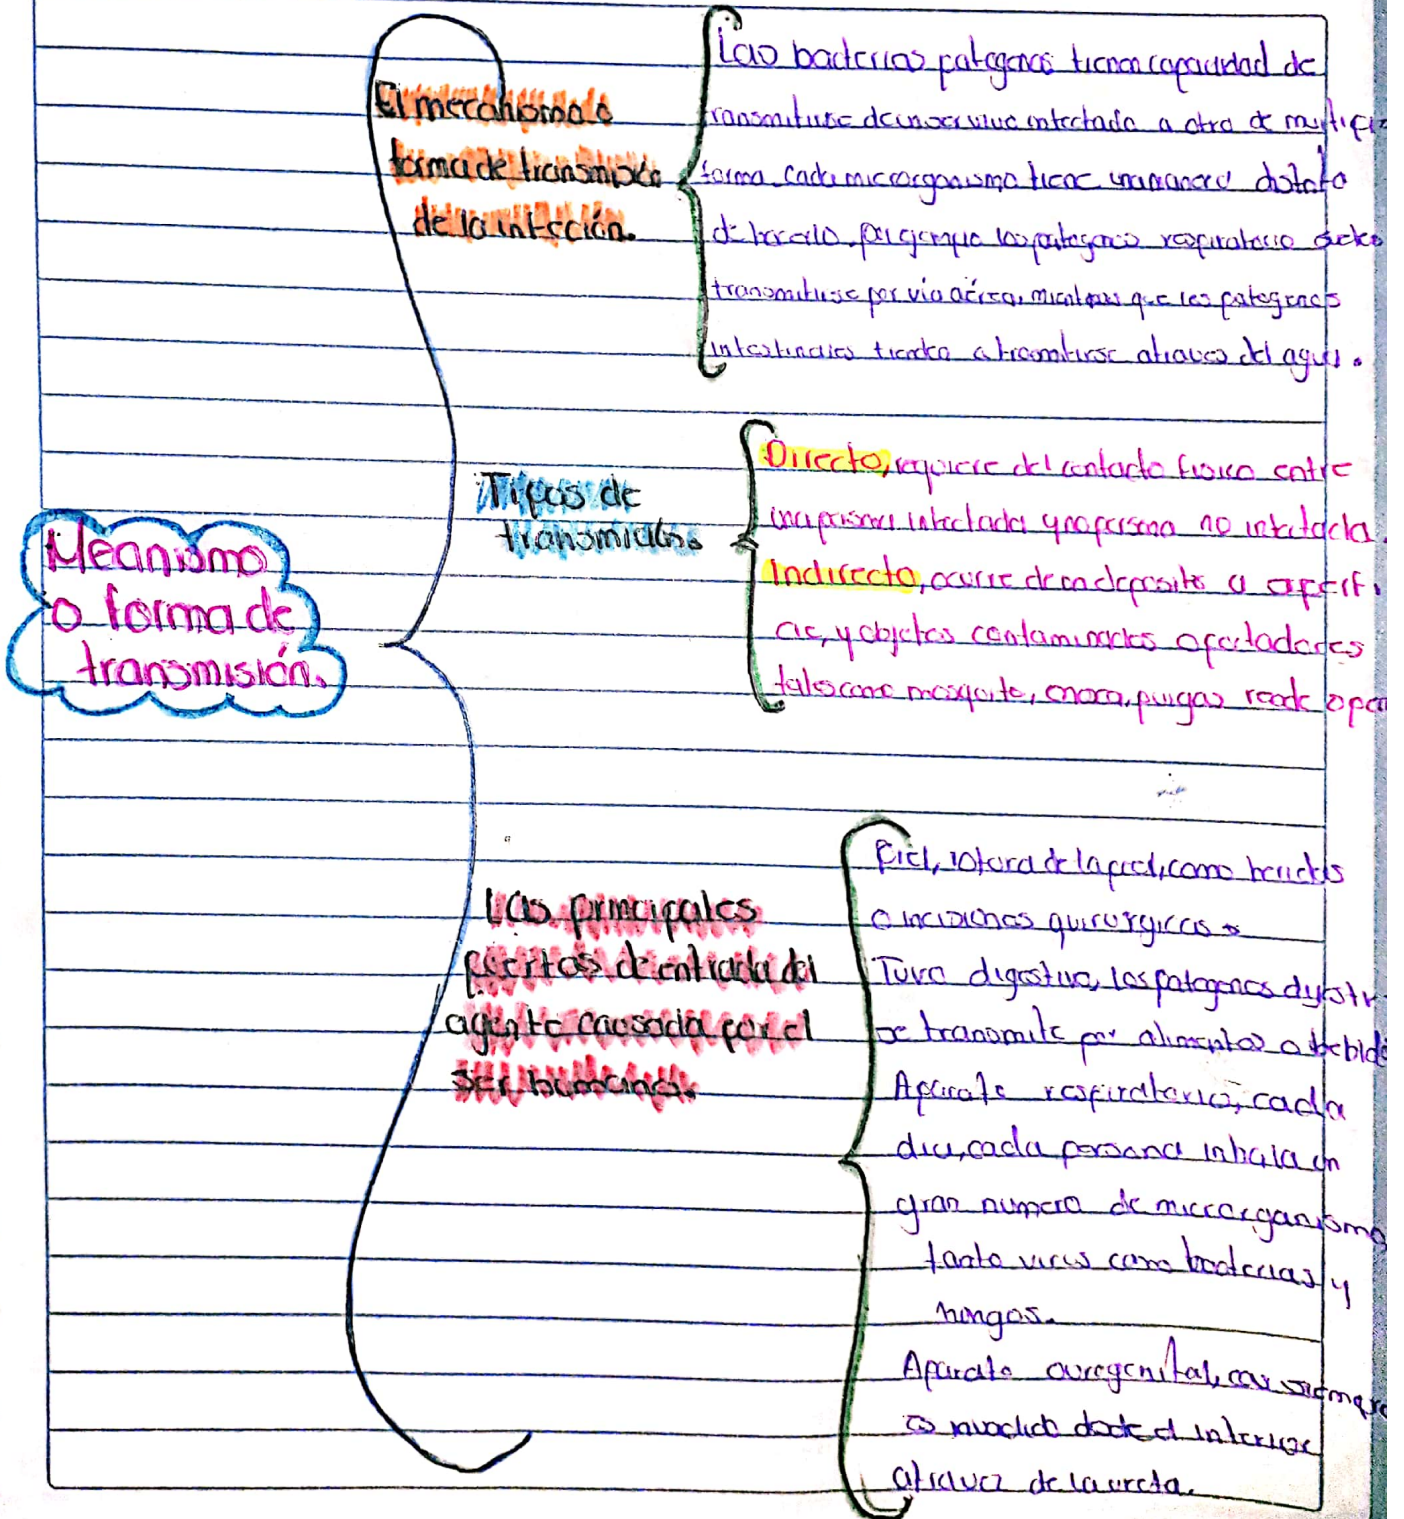 Meanismo
o forma de
transmisión.
El mecanismo o
forma de transmisión
de la infección.
Las bacterias patogenas tienen capacidad de
transmitirse de un ser vivo infectado a otro de
forma. Cada microorganismo tiene una manera distinta
de hacerlo, por ejemplo los patogenos respiratorio
transmitirse por via aérea, mientras que los patogenos
intestinales tienden a tramitirse atraves del agua.
Tipos de
transmición.
Directo, requiere del contacto fisico entre
una persona infectada y una persona no infectada.
Indirecto, ocurre de
cie, y objetos contaminados o portadores
tales como mosquito, mosca, pulgas
Las principales
de entrada del
agente causada por el
ser humano.
Piel, rotura de la piel, como heridas
o incisiones quirurgicas
Tuvo digestivo, los patogenos
se transmite por alimentos o bebida
Aparato respiratorio, cada
dia, cada persona inhala un
gran numero de microorganismo
tanto virus como bacterias y
hongos.
Aparato
es invadido desde el interior
atravez de la